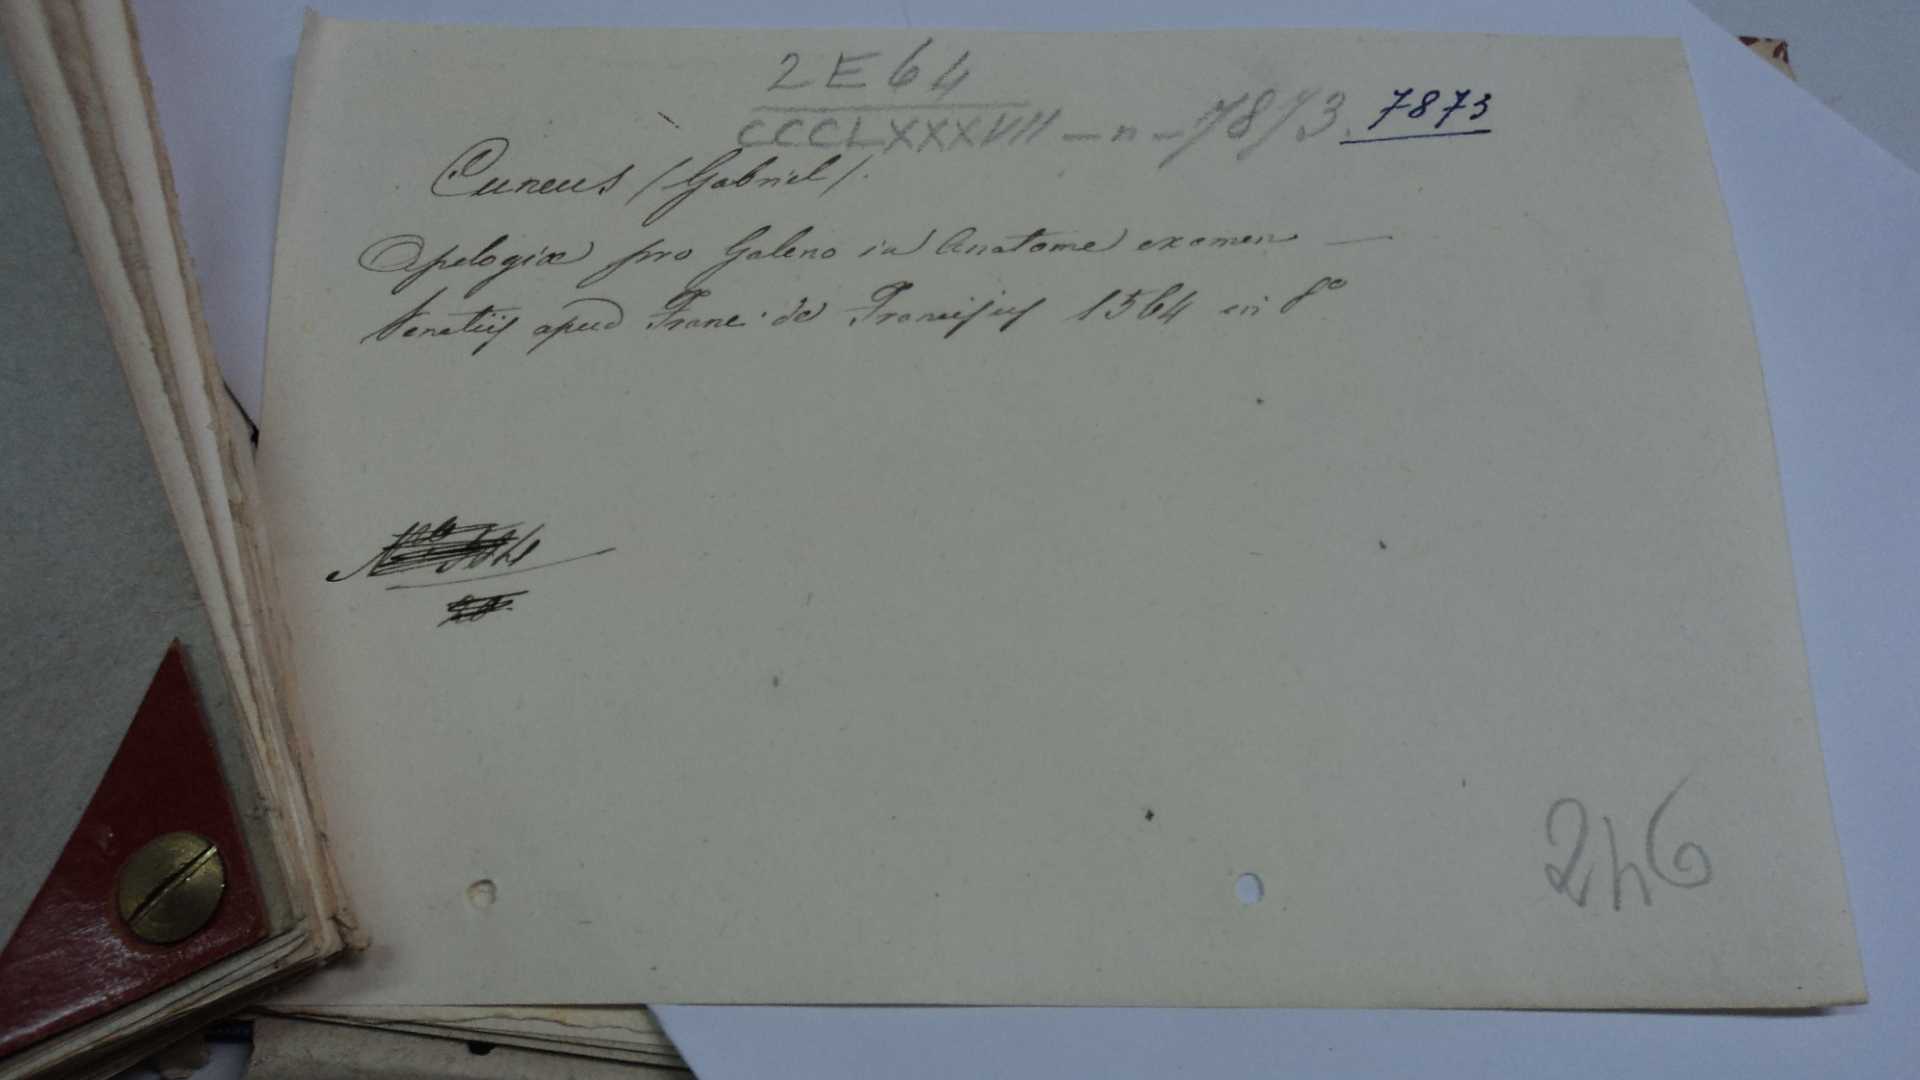 2E64
CCCLXXXVII — n — 7873. 7873
Cuneus (Gabriel).
Apologiæ pro Galeno in Anatome examen —
Venetiis apud Franc. de Francisjus 1564 in 8º
246